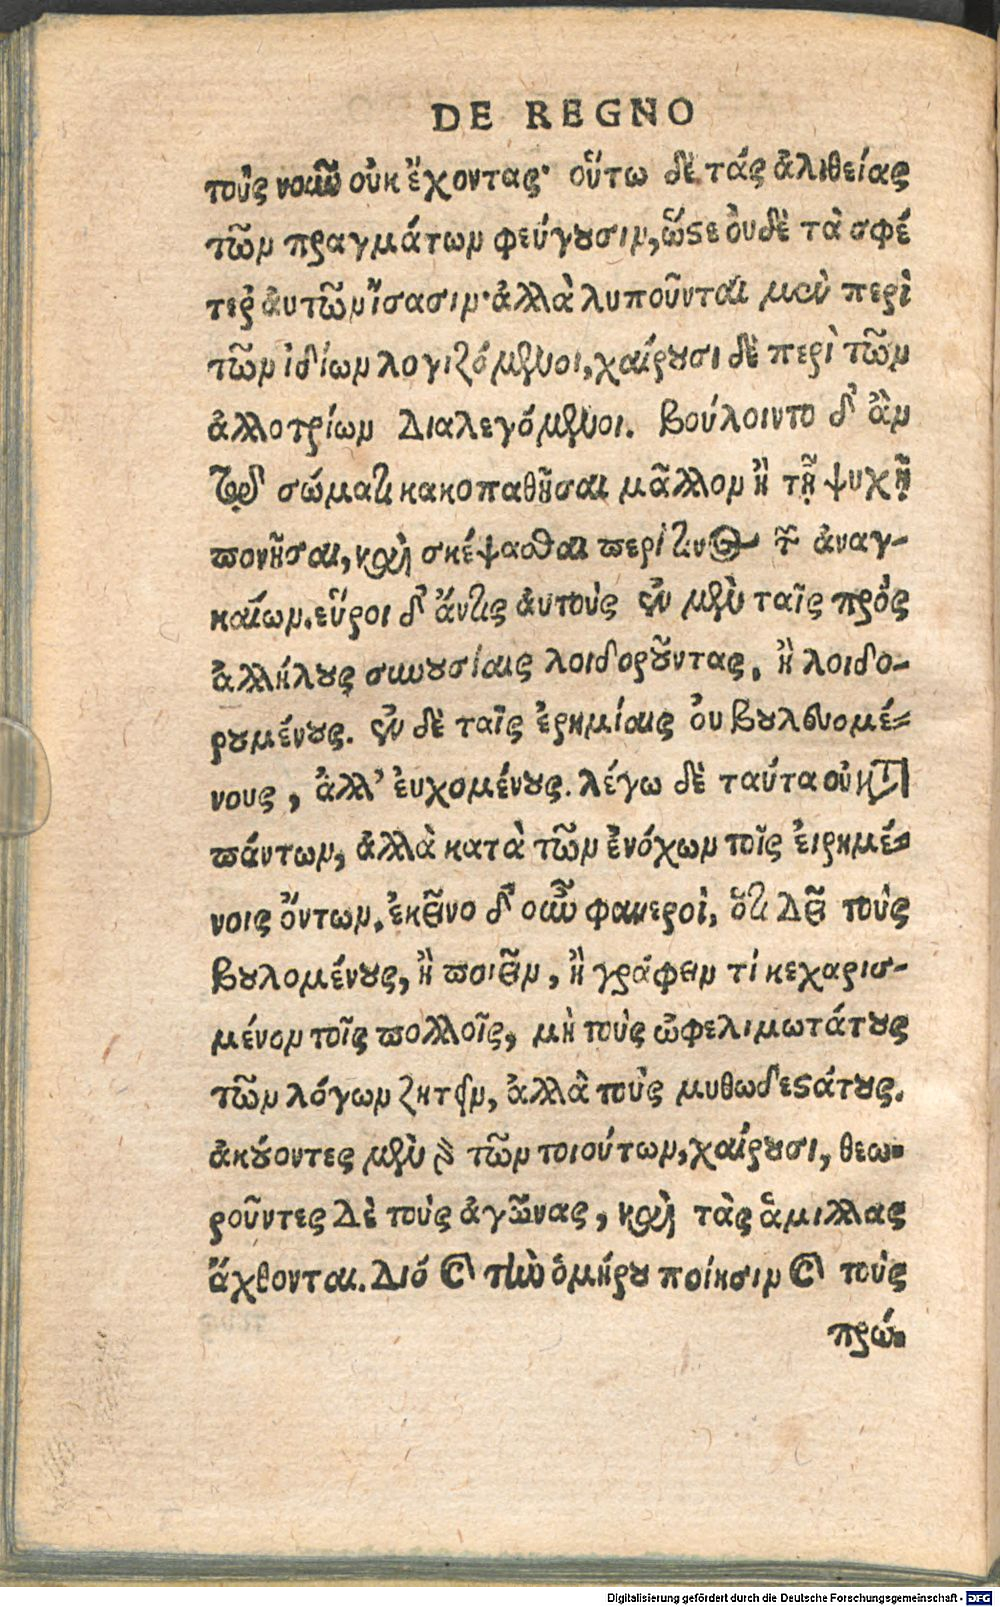 DE REGNO
τοὺς νοῦν οὐκ ἔχοντας· οὕτω δὲ τάς ἀλιθείας
τῶν πραγμάτων φεύγουσιν, ὥστε ὀυδὲ τὰ σφέ
τερ ἀυτῶν ἴσασιν· ἀλλὰ λυποῦνται μὲν περὶ
τῶν ἰδίων λογιζόμενοι, χαίρουσι δὲ περὶ τῶν
ἀλλοτρίων Διαλεγόμενοι. Βούλοιντο δ' ἂν
τῷ σώματι κακοπαθῆσαι μᾶλλον ἢ τῇ ψυχῇ
πονῆσαι, καὶ σκέψασθαι περί τινος τῶν ἀναγ-
καίων. εὕροι δ' ἄντις ἀυτοὺς ἐν μὲν ταῖς πρὸς
ἀλλήλους συνουσίαις λοιδοροῦντας, ἢ λοιδο-
ρουμένους. ἐν δὲ ταῖς ἐρημίαις ὀυ βουλευομέ-
νους, ἀλλ' ἐυχομένους. λέγω δὲ ταύτα οὐ κατὰ
πάντων, ἀλλὰ κατὰ τῶν ἐνόχων τοῖς ἐιρημέ-
νοις ὄντων. ἐκεῖνο δ' οὖν φανερὸν, ὅτι Δεῖ τοὺς
βουλομένους, ἢ ποιεῖν, ἢ γράφειν τί κεχαρισ-
μένον τοῖς πολλοῖς, μὴ τοὺς ὠφελιμωτάτους
τῶν λόγων ζητεῖν, ἀλλὰ τοὺς μυθωδεστάτους.
ἀκούοντες μὲν γὰρ τῶν τοιούτων, χαίρουσι, θεω-
ροῦντες Δὲ τοὺς ἀγῶνας, καὶ τὰς ἁμίλλας
ἄχθονται. Διό καὶ τὴν ὁμήρου ποίησιν καὶ τοὺς
πρώ-
Digitalisierung gefördert durch die Deutsche Forschungsgemeinschaft - DFG